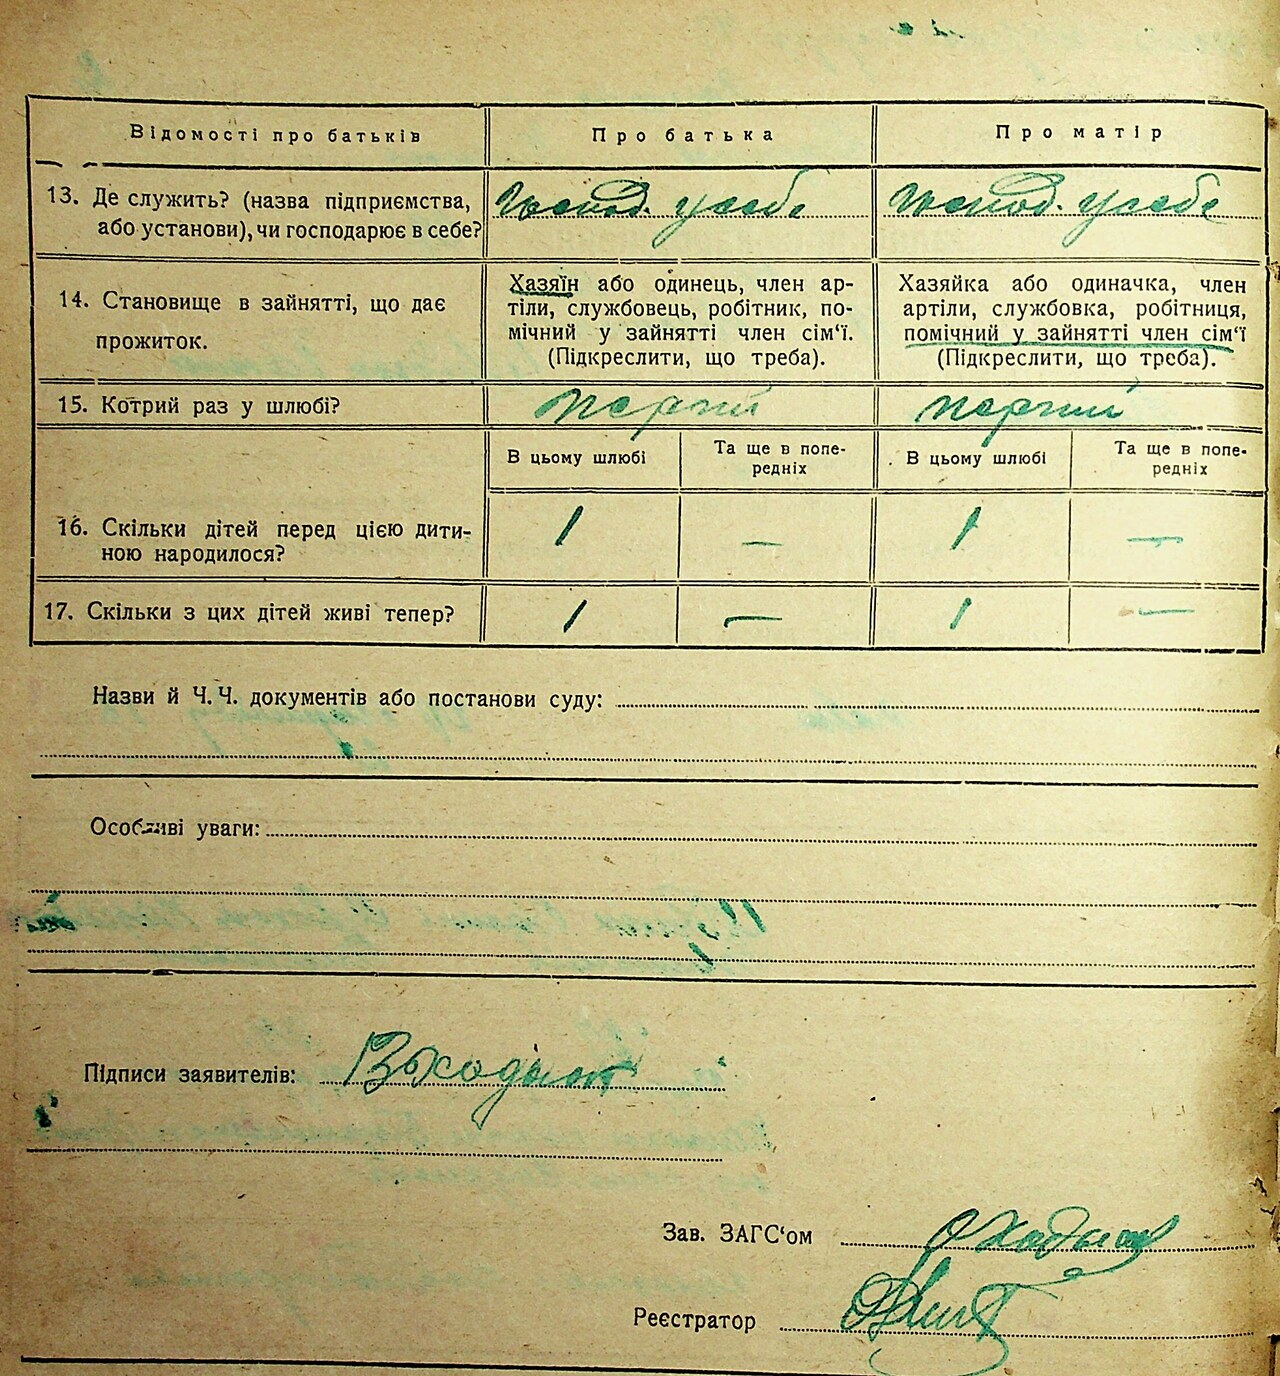 Відомості про батьків
Про батька
Про матір
13. Де служить? (назва підприємства,
або установи), чи господарює в себе?
господ. у себе
господ. у себе
14. Становище в зайнятті, що дає
прожиток.
Хазяїн або одинець, член ар-
тіли, службовець, робітник, по-
мічний у зайнятті член сім‘ї.
(Підкреслити, що треба).
Хазяйка або одиначка, член
артіли, службовка, робітниця,
помічний у зайнятті член сім‘ї
(Підкреслити, що треба).
15. Котрий раз у шлюбі?
перший
перший
В цьому шлюбі
Та ще в попе-
редніх
В цьому шлюбі
Та ще в попе-
редніх
16. Скільки дітей перед цією дити-
ною народилося?
1
—
1
—
17. Скільки з цих дітей живі тепер?
1
—
1
—
Назви й Ч. Ч. документів або постанови суду:
Особливі уваги:
Підписи заявителів:
Зав. ЗАГС‘ом
Реєстратор